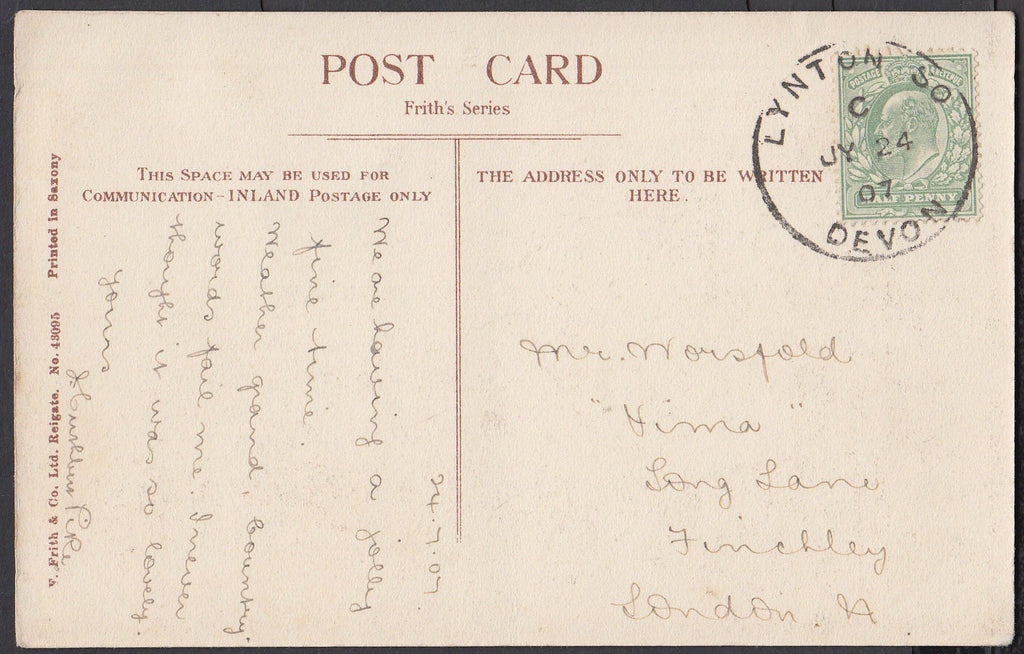 POST CARD
Frith's Series
THIS SPACE MAY BE USED FOR
COMMUNICATION - INLAND POSTAGE ONLY
THE ADDRESS ONLY TO BE WRITTEN
HERE.
24.7.07
We are having a jolly
fine time.
Weather grand, country,
words fail me. I never
thought it was so lovely.
Yours
Pike
Mr. Worsfold
Long Lane
Finchley
London. N
LYNTON SO
C
JY 24
07
DEVON
POSTAGE REVENUE
HALF PENNY
F. Frith & Co. Ltd. Reigate. No. 43095 Printed in Saxony